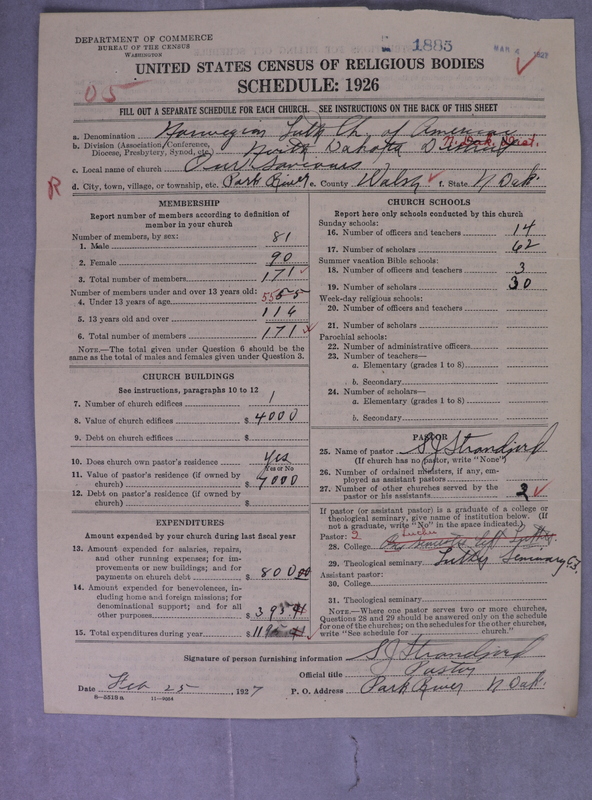 DEPARTMENT OF COMMERCE
BUREAU OF THE CENSUS
WASHINGTON
1885
MAR 2 1927
UNITED STATES CENSUS OF RELIGIOUS BODIES
SCHEDULE: 1926
05
FILL OUT A SEPARATE SCHEDULE FOR EACH CHURCH. SEE INSTRUCTIONS ON THE BACK OF THIS SHEET
a. Denomination Norwegian Luth Ch. of America
b. Division (Association, Conference, Diocese, Presbytery, Synod, etc.) North Dakota District N. Dak. Dist.
c. Local name of church Our Saviours
R
d. City, town, village, or township, etc. Park River e. County Walsh f. State N Dak.
MEMBERSHIP
Report number of members according to definition of
member in your church
Number of members, by sex:
1. Male 81
2. Female 90
3. Total number of members 171
Number of members under and over 13 years old:
4. Under 13 years of age 55
5. 13 years old and over 116
6. Total number of members 171
NOTE.—The total given under Question 6 should be the
same as the total of males and females given under Question 3.
CHURCH BUILDINGS
See instructions, paragraphs 10 to 12
7. Number of church edifices 1
8. Value of church edifices $ 4000
9. Debt on church edifices $
10. Does church own pastor's residence Yes
Yes or No
11. Value of pastor's residence (if owned by
church) $ 4000
12. Debt on pastor's residence (if owned by
church) $
EXPENDITURES
Amount expended by your church during last fiscal year
13. Amount expended for salaries, repairs,
and other running expenses; for im-
provements or new buildings; and for
payments on church debt $ 800 00
14. Amount expended for benevolences, in-
cluding home and foreign missions; for
denominational support; and for all
other purposes $ 395
15. Total expenditures during year $ 1195
CHURCH SCHOOLS
Report here only schools conducted by this church
Sunday schools:
16. Number of officers and teachers 14
17. Number of scholars 62
Summer vacation Bible schools:
18. Number of officers and teachers 3
19. Number of scholars 30
Week-day religious schools:
20. Number of officers and teachers
21. Number of scholars
Parochial schools:
22. Number of administrative officers
23. Number of teachers—
a. Elementary (grades 1 to 8)
b. Secondary
24. Number of scholars—
a. Elementary (grades 1 to 8)
b. Secondary
PASTOR
25. Name of pastor S J Strandjord
(If church has no pastor, write "None")
26. Number of ordained ministers, if any, em-
ployed as assistant pastors
27. Number of other churches served by the
pastor or his assistants 2
If pastor (or assistant pastor) is a graduate of a college or
theological seminary, give name of institution below. (If
not a graduate, write "No" in the space indicated.)
Pastor:
28. College Luther
29. Theological seminary Luther Seminary
Assistant pastor:
30. College
31. Theological seminary
NOTE.—Where one pastor serves two or more churches,
Questions 28 and 29 should be answered only on the schedule
for one of the churches; on the schedules for the other churches,
write "See schedule for church."
Signature of person furnishing information S J Strandjord
Official title Pastor
Date Feb 25 1927 P. O. Address Park River N Dak.
8-5518a 11-9054